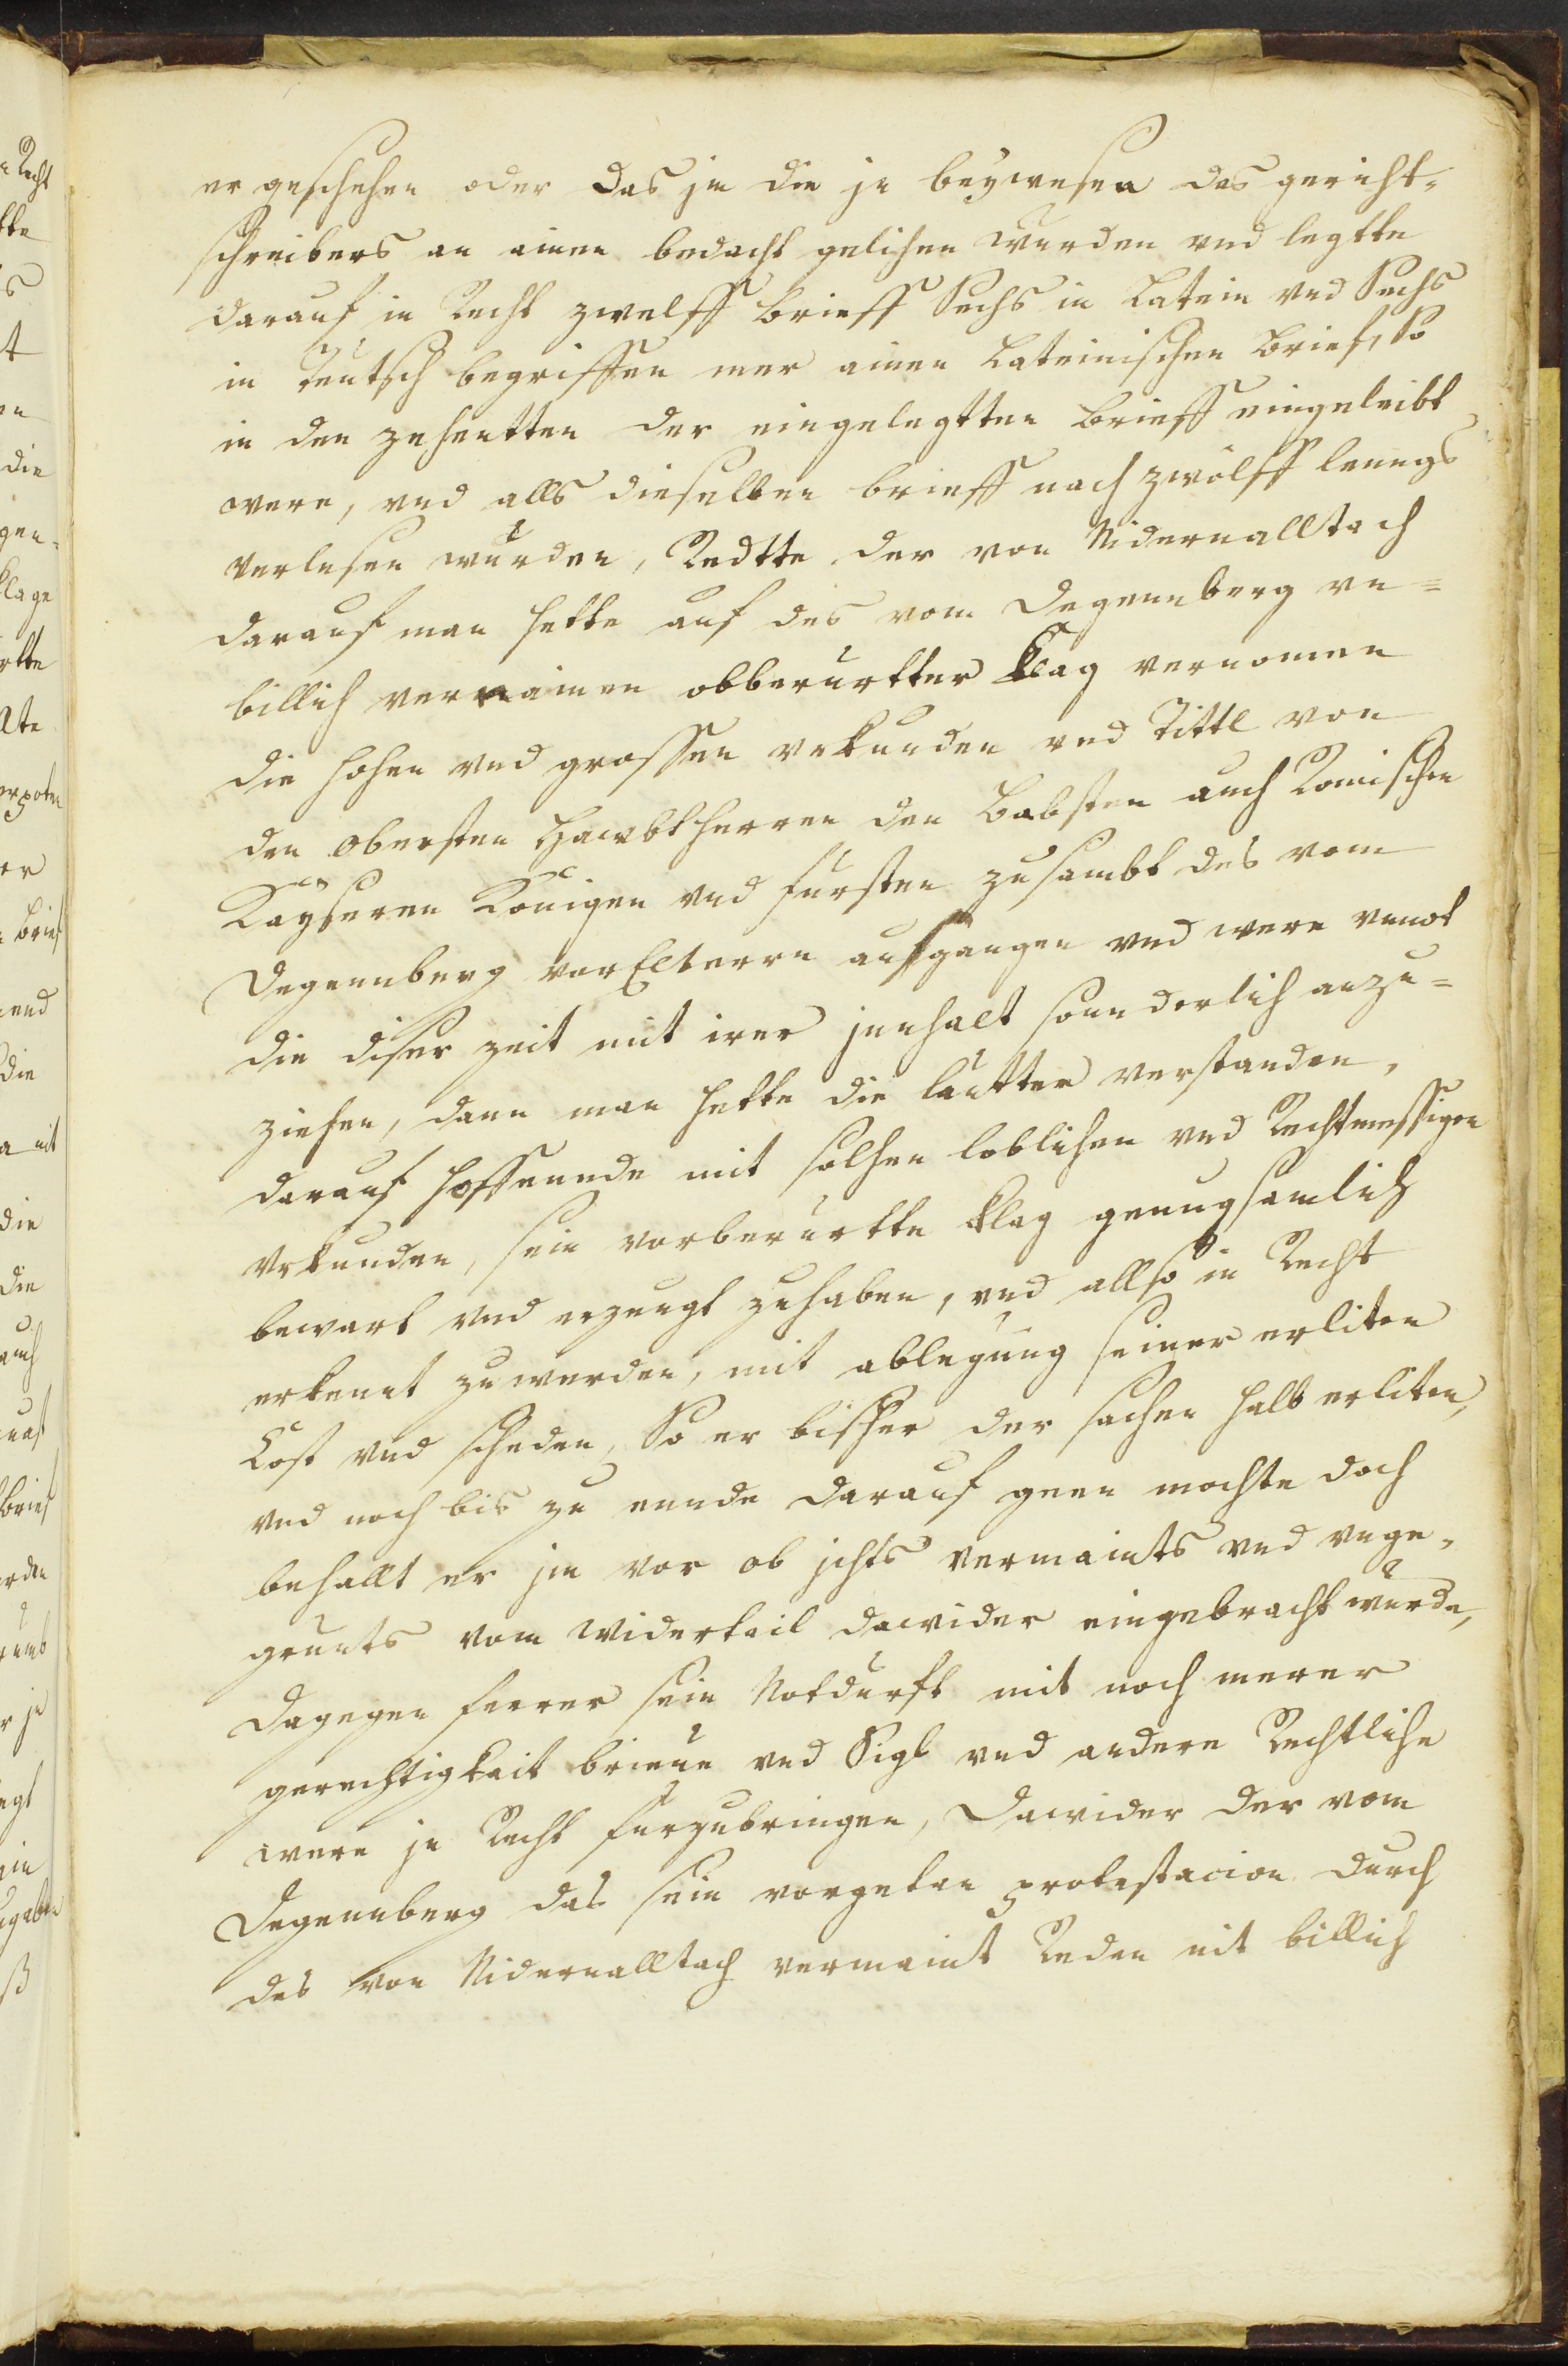 er geschehen oder das jm die jn beywesen des gericht-
schreibers an ainen bedacht gelihen wurden vnd legtte
darauf in Recht zwelff brieff Sechs in Latein vnd Sechs
in Teutsch begriffen mer ainen Lateinischen brief, So
in den zehentten der eingelegtten brieff eingeleibt
were, vnd alls dieselben brieff nach zwölff lenngs
verlesen wurden, Redtte der von Nidernalltach
darauf man hette auf des vom Degennberg vn=
billich vernainen obberurtter klag vernomen
die hohen vnd grossen vrkunden vnd Tittl von
den obersten Hawbtherren den Babsten auch Romischen
Kaysern Konigen vnd fursten zusambt des vom
Degennberg vorElterrn aufgangen vnd were vnnot
die diser zeit mit irer jnnhalt sonnderlich anzu=
ziehen, dann man hette die lautter verstanden,
darauf hoffennde mit solhen loblichen vnd Rechtmessigen
vrkunden, sein vorberurtte klag genungsamlich
bewart vnd erzeugt zuhaben, vnd allso in Recht
erkennt zuwerden, mit ablegung seiner erliten
Cost vnd scheden, So er bisher der sachen halb erliten,
vnd noch bis zu ennde darauf geen mochte doch
behallt er jm vor ob jchts vermaints vnd vnge-
grunts vom widertail dawider eingebracht wurde,
dagegen ferrer sein Notdurft mit noch merer
gerechtigkait brieue vnd Sigl vnd andere Rechtliche
were jn Recht furzubringen, Dawider der vom
Degennberg das sein vorgetan protestacion durch
des von Nidernalltach vermaint Reden nit billich